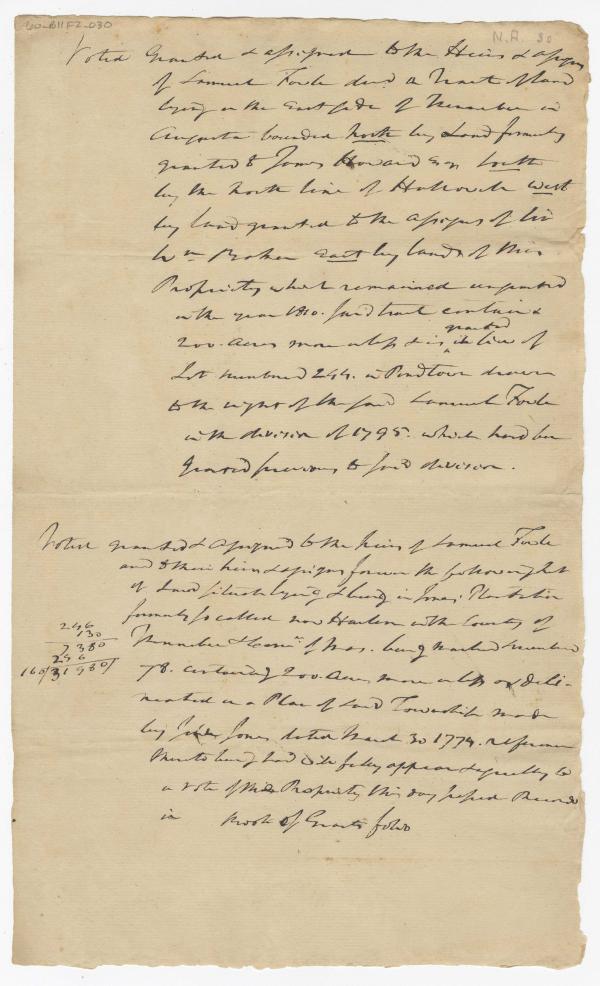 60-B11F2-030
N.A. 30
Voted Granted & assigned to the Heirs & assigns
of Samuel Fowle decd a Tract of land
lying on the East side of Kennebec in
Augusta bounded North by Land formerly
granted to James Howard Esqr South
by the North line of Hallowell West
by land granted to the assigns of
Wm East by lands of this
Propriety which remained ungranted
in the year 1810. Said tract contains
granted
200. Acres more or less & is in lieu of
Lot numbered 244. in Pondtown drawn
to the right of the said Samuel Fowle
in the division of 1795. which had been
Granted previous to said division.
Voted granted & assigned to the heirs of Samuel Fowle
and to their heirs & assigns forever the following lot
of Land situate lying & being in Jones Plantation
formerly so called now Harlem in the County of
Kennebec & Comm. of Mas. being marked number
78. containing 200. Acres more or less & deli-
neated on a Plan of said Township made
by John Jones dated March 30 1774. reference
thereto being had will fully appear & agreeably to
a vote of this Propriety this day passed Recorded
in Book of Grants folio
246
130
7380
246
160/31980/